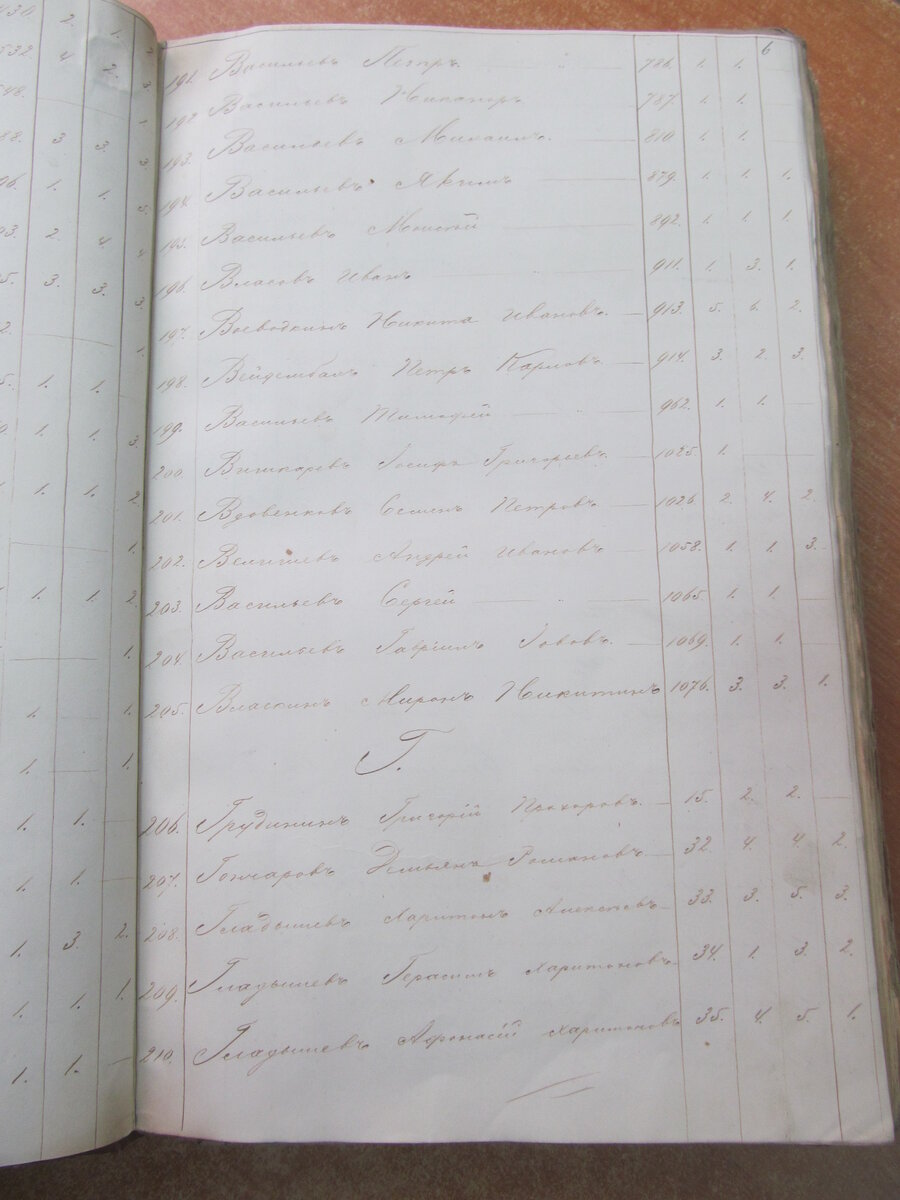 6
191. Васильевъ Петръ. 786. 1. 1.
192 Васильевъ Никаноръ 787. 1. 1.
193. Васильевъ Михаилъ. 810. 1. 1.
194. Васильевъ Якимъ 879. 1. 1. 1.
195. Васильевъ Моисей 892. 1. 1. 1.
196. Власовъ Иванъ 911. 1. 3. 1.
197. Воеводкинъ Никита Ивановъ. 913. 5. 6. 2.
198. Петръ Карловъ 914. 3. 2. 3.
199. Васильевъ Тимофей 962. 1. 1.
200. Іосифъ Григорьевъ 1025. 1.
201. Вдовенковъ Семенъ Петровъ 1026. 2. 4. 2.
202. Андрей Ивановъ 1058. 1. 1. 3.
203. Васильевъ Сергей 1065. 1. 1.
204. Васильевъ Гавріилъ Іововъ. 1069. 1. 1.
205. Власкинъ Миронъ Никитинъ 1076. 3. 3. 1.
Г.
206. Грудининъ Григорій Прохоровъ. 15. 2. 2.
207. Гончаровъ Демьянъ Романовъ 32. 4. 4. 2.
208. Гладышевъ Харитонъ Алексеевъ 33. 3. 5. 3.
209. Гладышевъ Герасимъ Харитоновъ. 34. 1. 3. 2.
210. Гладышевъ Афонасій Харитоновъ 35. 4. 5. 1.